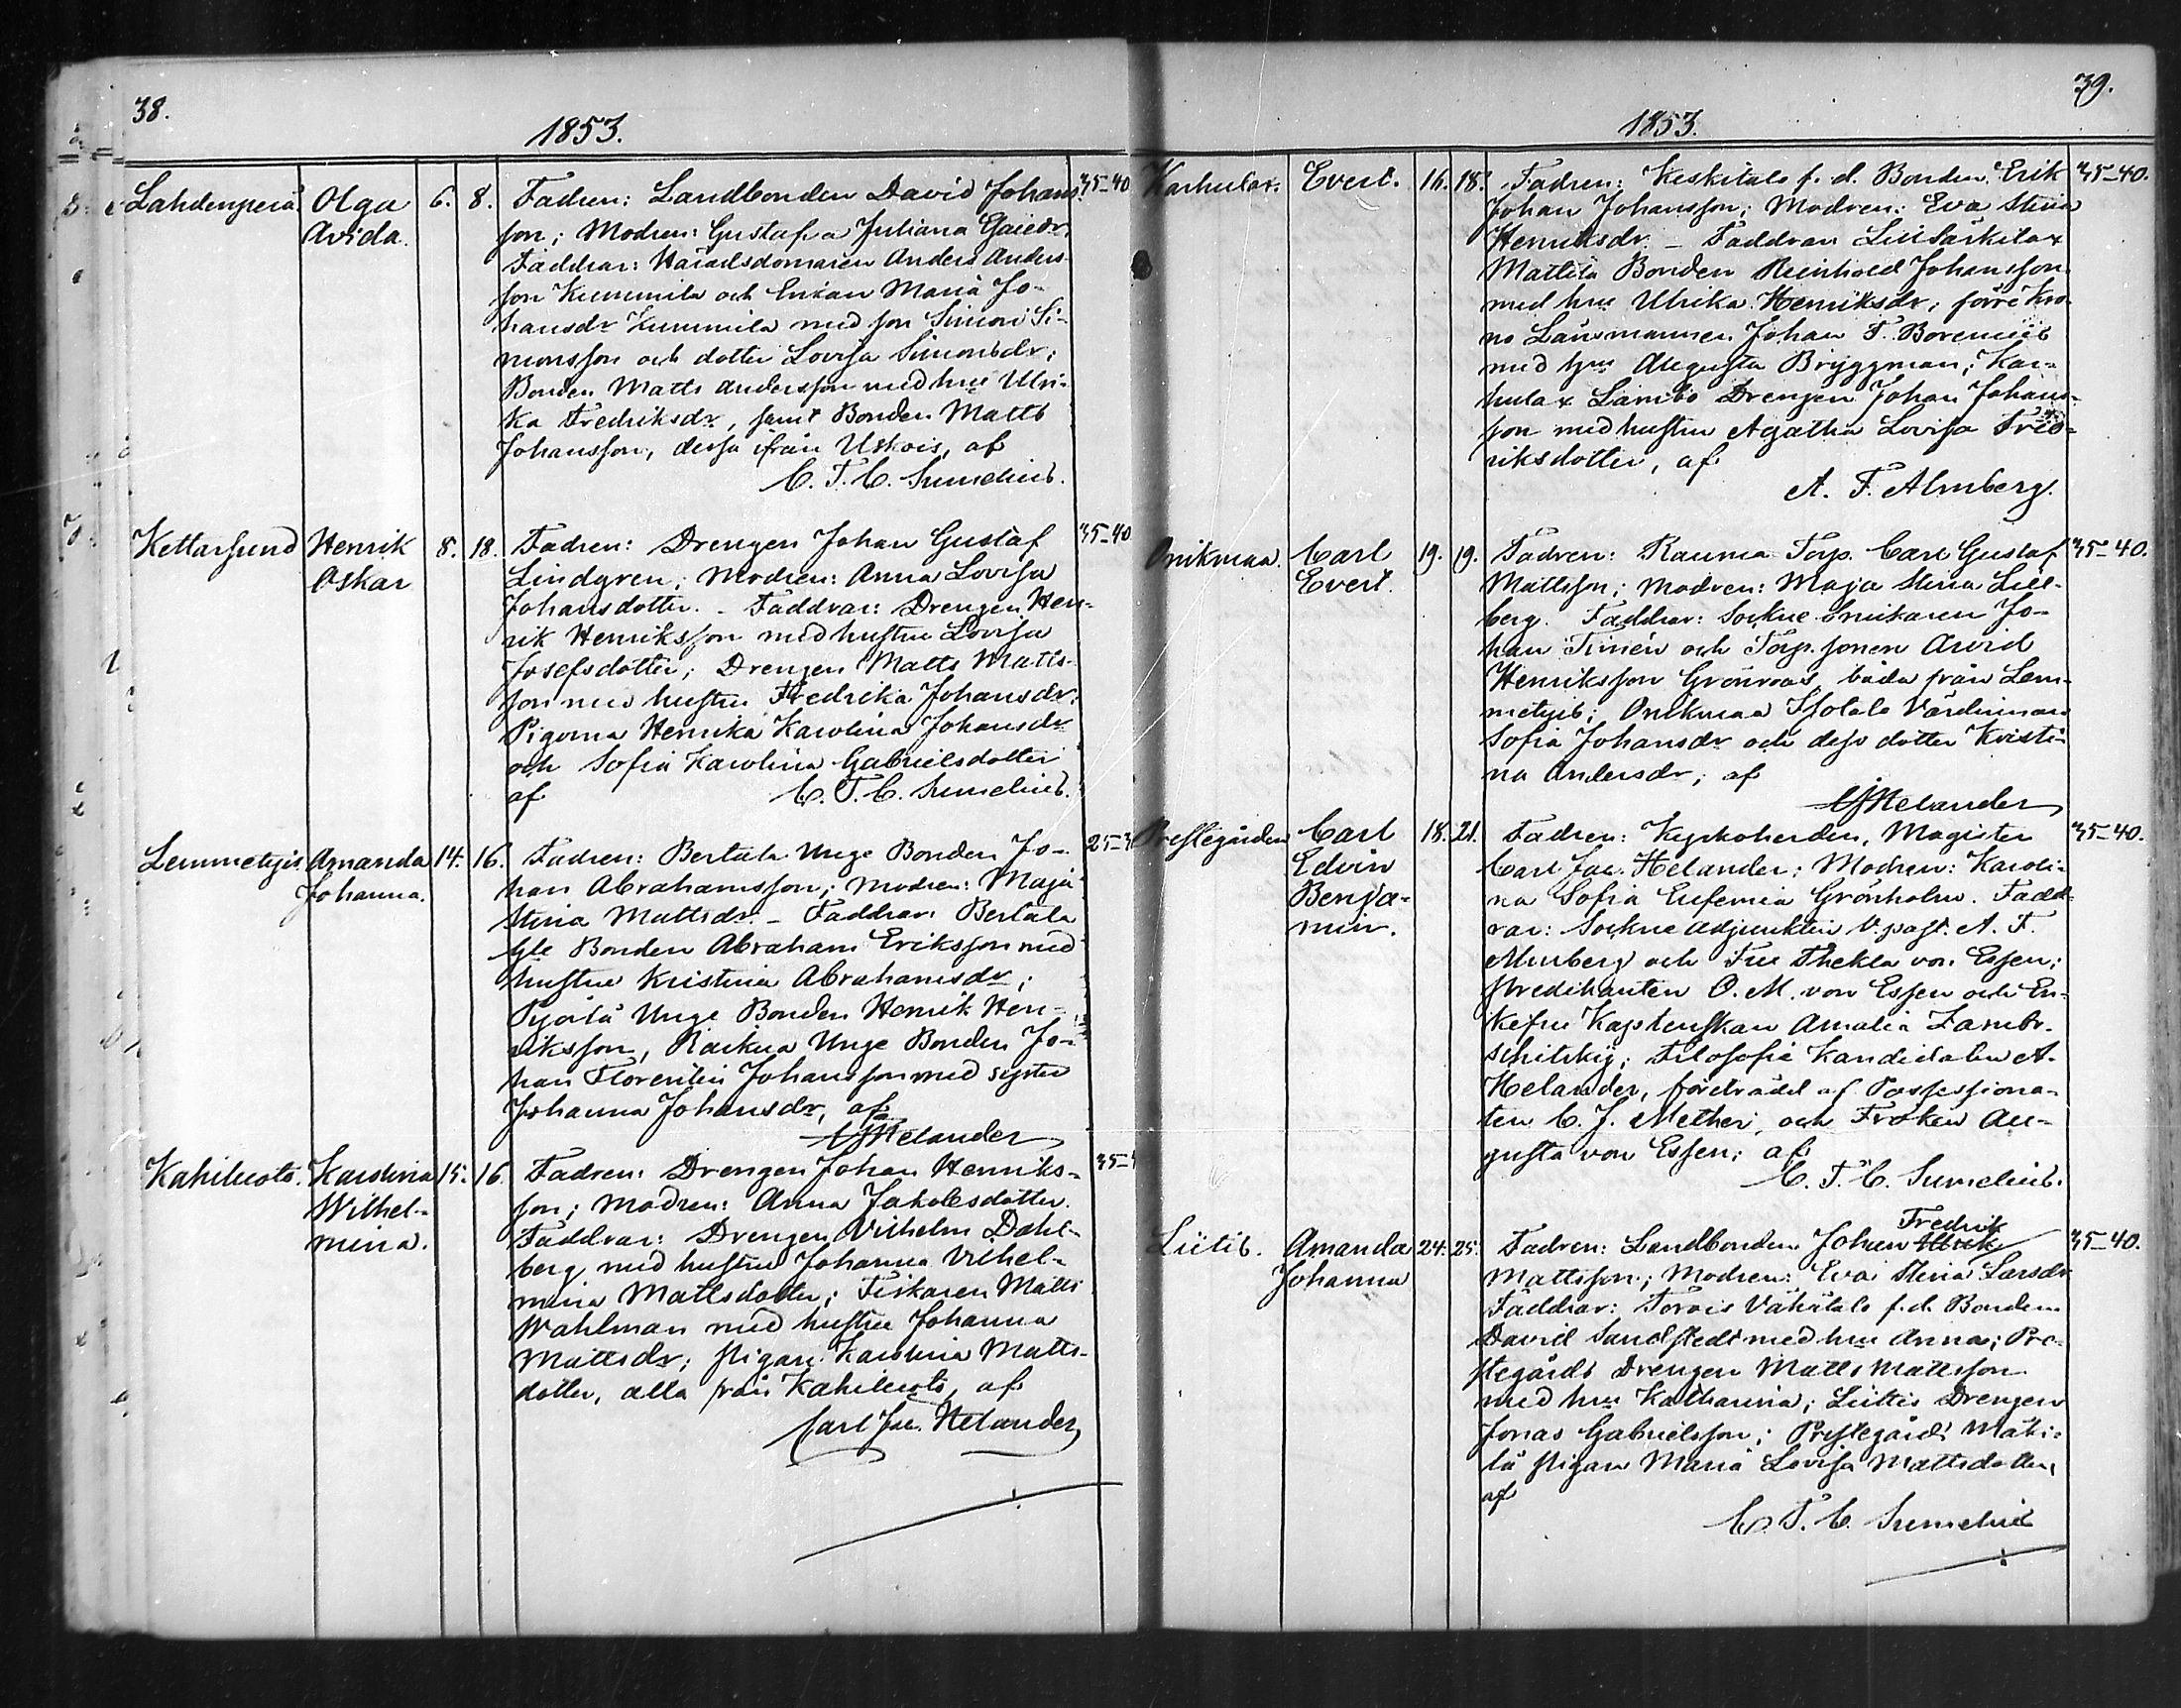 38.
1853.
Lahdenperä. Olga 6. 8. Fadren: Landbonden David Johans- 35-40
Avida. son; Modren: Gustafva Juliana
Faddrar: Häradsdomaren Anders Anders-
son Kummila och Enkan Maria Jo-
hansdr Kummila med son Simon Si-
monsson och dotter Lovisa Simonsdr;
Bonden Matts Andersson med hu Ulri-
ka Fredriksdr, samt Bonden Matts
Johansson, dessa ifrån Uskois, af
C. T. C. Sumelius.
Kettarsund Henrik 8. 18. Fadren: Drengen Johan Gustaf 35-40
Oskar Lindgren; Modren: Anna Lovisa
Johansdotter. - Faddrar: Drengen Hen-
rik Henriksson med hustru Lovisa
Josefsdotter; Drengen Matts Matts-
son med hustru Fredrika Johansdr;
Pigorna Henrika Karolina Johansdr
och Sofia Karolina Gabrielsdotter
af C. T. C. Sumelius.
Lemmetyis. Amanda 14. 16. Fadren: Bertala Unge Bonden Jo- 25-3
Johanna. han Abrahamsson; Modren: Maja
Stina Mattsdr. - Faddrar: Bertala
Gle Bonden Abraham Eriksson med
hustru Kristina Abrahamsdr;
Pyörlä Unge Bonden Henrik Hen-
riksson, Raikua Unge Bonden Jo-
han Florentin Johansson med syster
Johanna Johansdr, af
CJHelander
Kahiluoto. Karolina 15. 16. Fadren: Drengen Johan Henriks- 35-4
Wilhel- son; Modren: Anna Jakobsdotter.
mina. Faddrar: Drengen Vilhelm Dahl-
berg med hustru Johanna Vilhel-
mina Mattsdotter; Fiskaren Matts
Wahlman med hustru Johanna
Mattsdr; pigan Karolina Matts-
dotter, alla från Kahiluoto, af
Carl Jac. Helander
39.
1853.
Karhulax. Evert. 16. 18. Fadren: Keskitalo f. d. Bonden Erik 35-40.
Johan Johansson; Modren: Eva Stina
Henriksdr. - Faddrar Lillsärkilax
Mattila Bonden Reinhold Johansson
med hu Ulrika Henriksdr; förre Kro-
no Länsmannen Johan F. Borenius
med hu Augusta Bryggman; Kar-
hulax Lambo Drengen Johan Johans-
son med hustru Agatha Lovisa Fred-
riksdotter, af
A. F. Almberg.
Onikmaa. Carl 19. 19. Fadren: Rauma Torp. Carl Gustaf 35-40.
Evert. Mattsson; Modren: Maja Stina Lill-
berg. Faddrar: Sockne Snickaren Jo-
han Timén och Torp.sonen Arvid
Henriksson Grönroos, båda från Lem-
metyis; Onikmaa Isotalo Värdinnan
Sofia Johansdr och dess dotter Kristi-
na Andersdr; af
CJHelander
Prestegården Carl 18. 21. Fadren: Kyrkoherden, Magister 35-40.
Edvin Carl Jac. Helander; Modren: Karoli-
Benja- na Sofia Eufemia Grönholm. Fadd-
min. rar: Sockne adjunkten V. past. A. F.
Almberg och Fru Thekla von Essen;
Predikanten O. M. von Essen och En-
kefru Kaptenskan Amalia Zambr-
schitskij; Filosofie Kandidaten A.
Helander, företrädd af Possessiona-
ten C. J. Mether; och Fröken Au-
gusta von Essen; af
C. T. C. Sumelius.
Liitis. Amanda 24. 25. Fadren: Landbonden Johan Fredrik 35-40.
Johanna Mattsson; Modren: Eva Stina Larsdr
Faddrar: Torois Vähätalo f. d. Bonden
David Sandstedt med hu Anna; Pre-
stegårds Drengen Matts Mattsson
med hu Katharina; Liitis Drengen
Jonas Gabrielsson; Prestegårds Mäki-
lä pigan Maria Lovisa Mattsdotter,
af
C. T. C. Sumelius